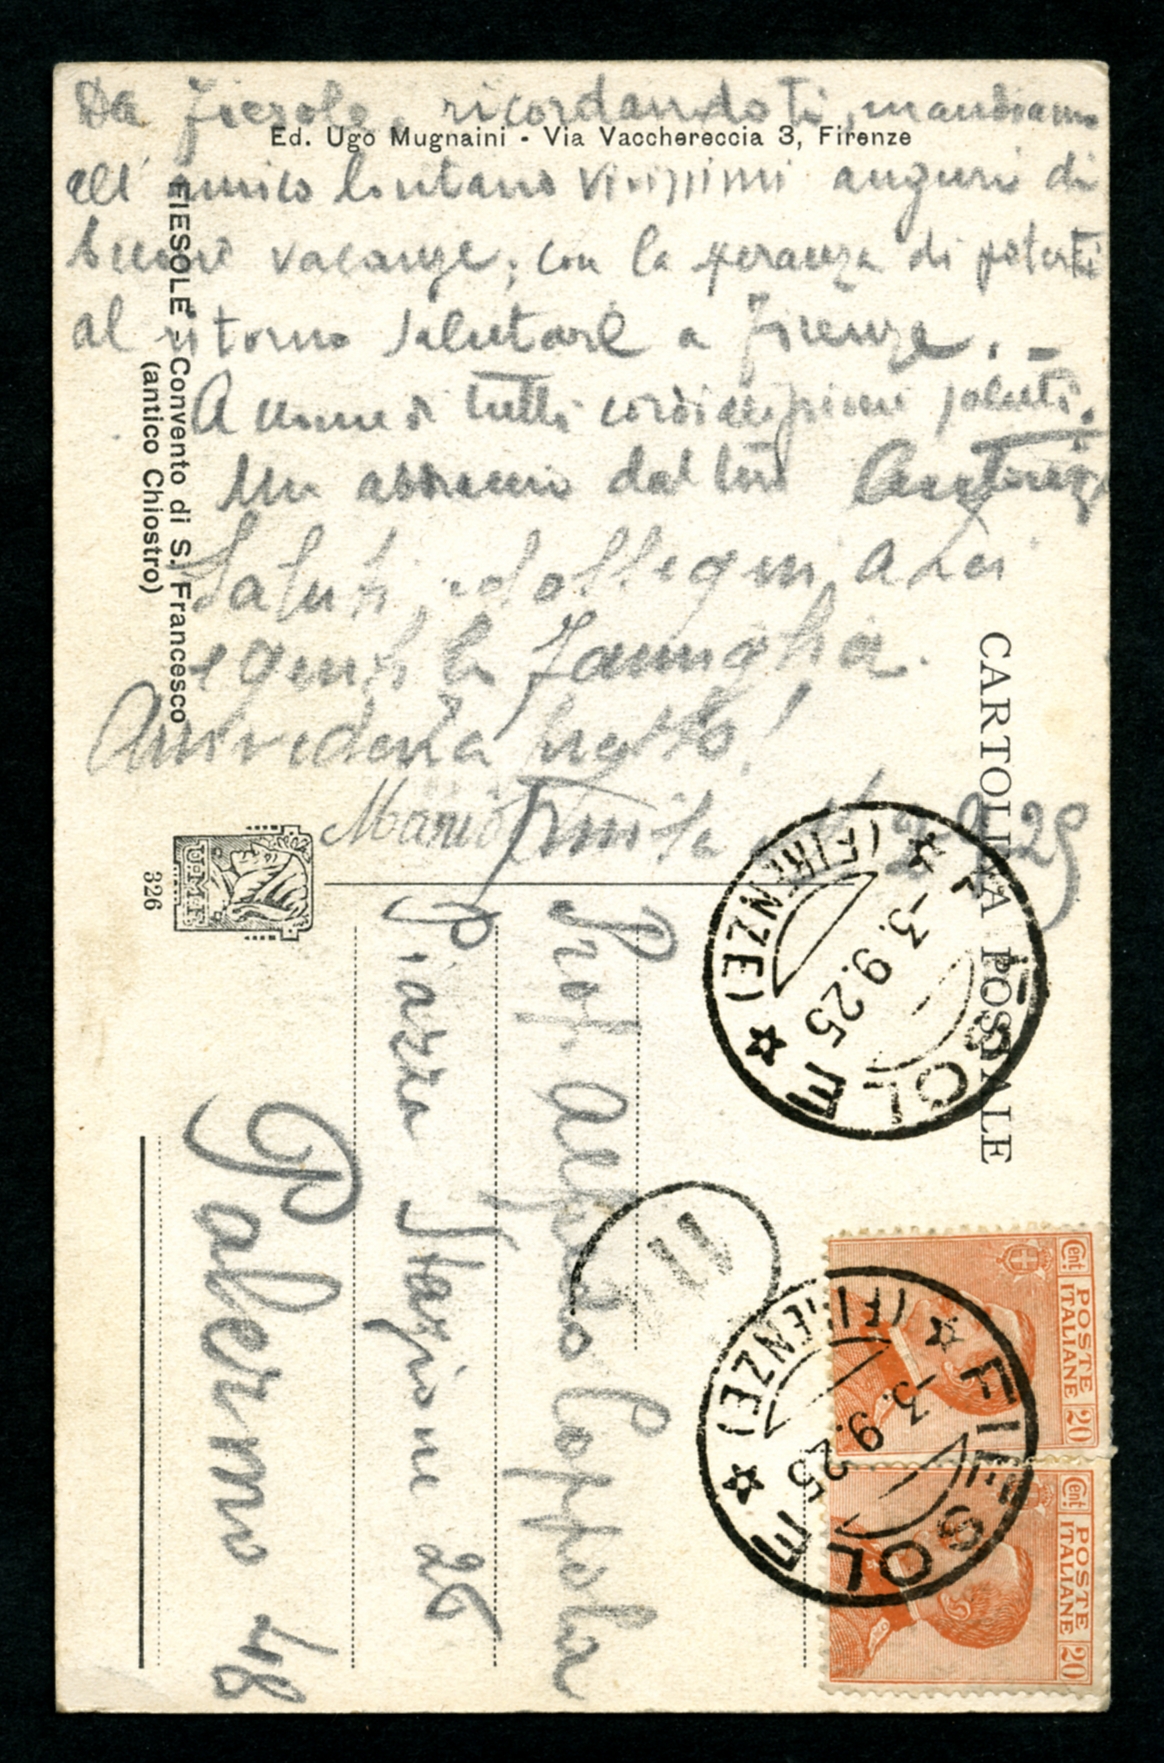 Da Fiesole, ricordandoti, mandiamo
Ed. Ugo Mugnaini - Via Vacchereccia 3, Firenze
all'amico lontano vivissimi auguri di
buone vacanze, con la speranza di poterti
al ritorno salutare a Firenze. -
A nome di tutti cordialissimi saluti.
Un abbraccio dal tuo
Saluti, ed ossequi a Lei
e gentile famiglia.
Arrivederla presto!
Mario
2.9.25
FIESOLE - Convento di S. Francesco
(antico Chiostro)
U.M.F.
326
CARTOLINA POSTALE
Prof. Alfredo Coppola
Piazza Stazione 26
Palermo 48
FIESOLE
(FIRENZE)
-3.9.25
11
FIESOLE
(FIRENZE)
-3.9.25
POSTE
ITALIANE
Cent. 20
POSTE
ITALIANE
Cent. 20